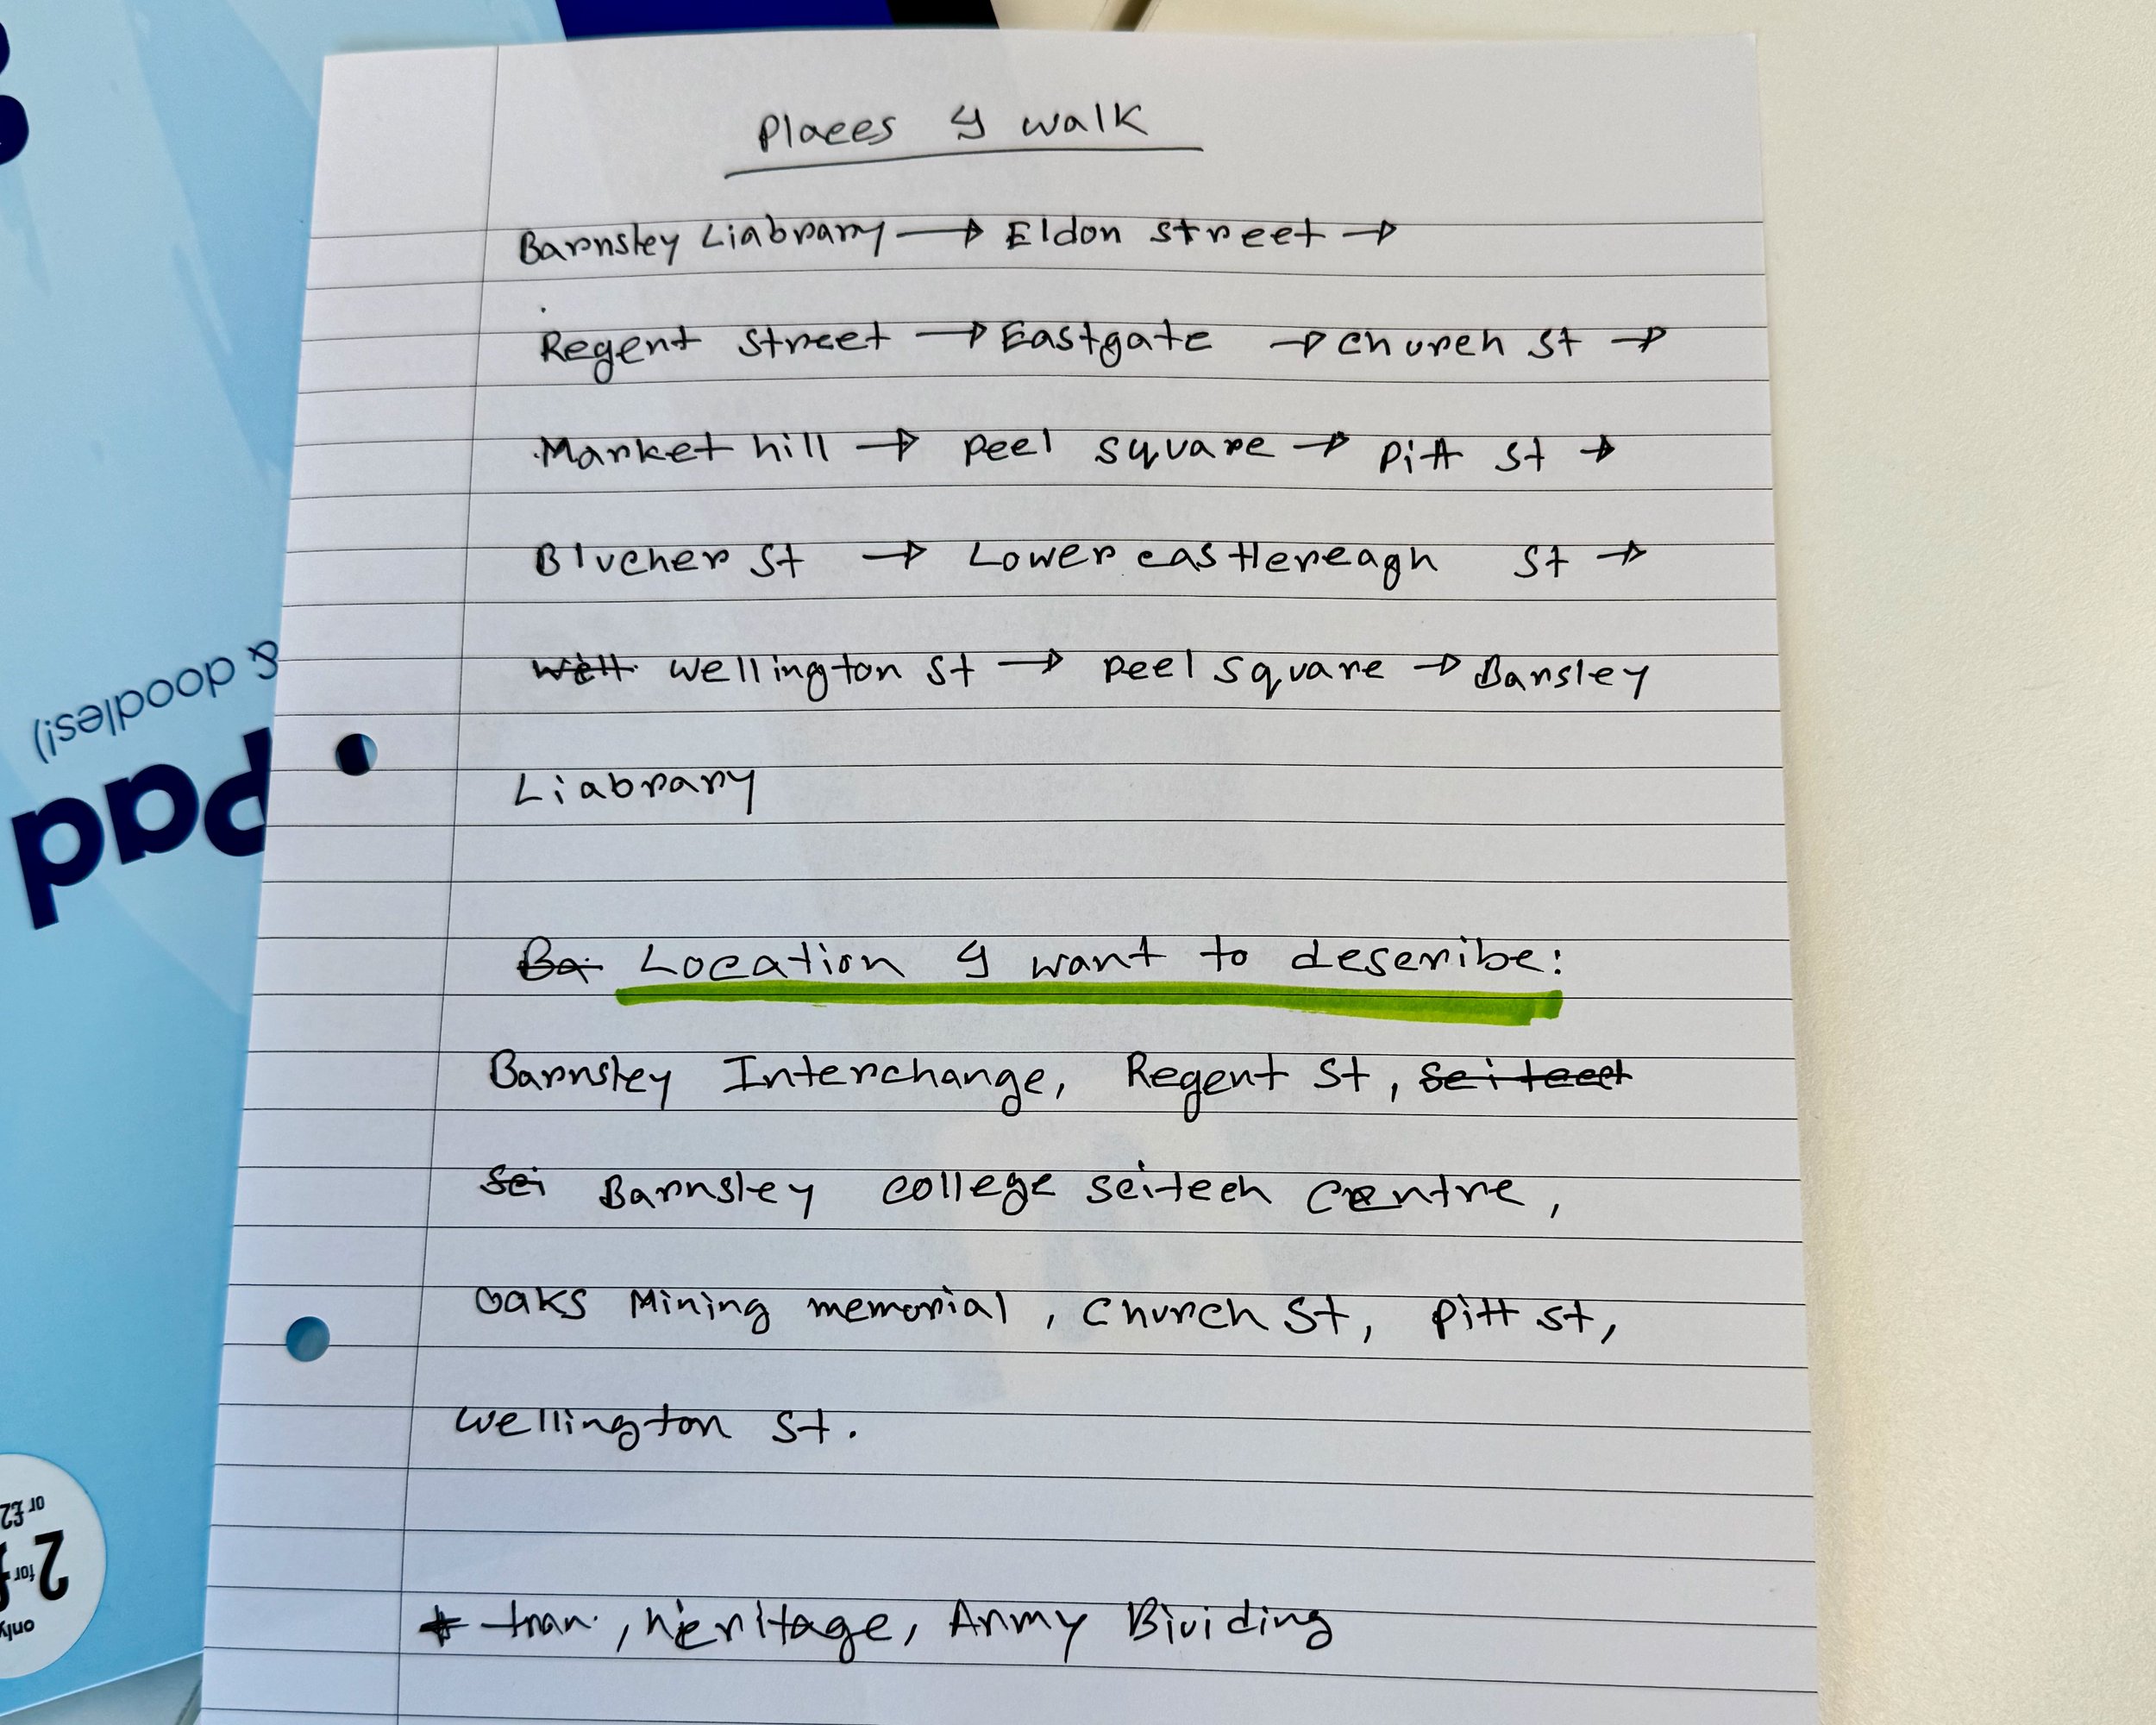 Places I walk
Barnsley Liabrary → Eldon street →
Regent street → Eastgate → church st →
Market hill → peel square → pitt st →
Blucher st → Lower castlereagh st →
well wellington st → peel square → Bansley
Liabrary
Ba Location I want to describe:
Barnsley Interchange, Regent St, seiteet
sei Barnsley college scitech centre,
Oaks Mining memorial, Church St, pitt st,
wellington st.
tran, heritage, Army Bividing
& doodles!)
pad
only
2 for £
or £2